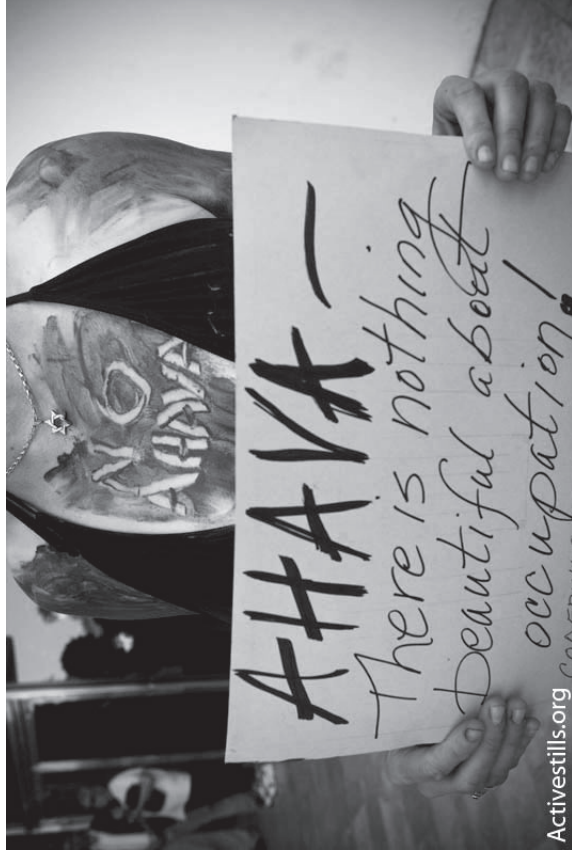 NO
AHAVA
AHAVA —
There is nothing
beautiful about
occupation!
Activestills.org